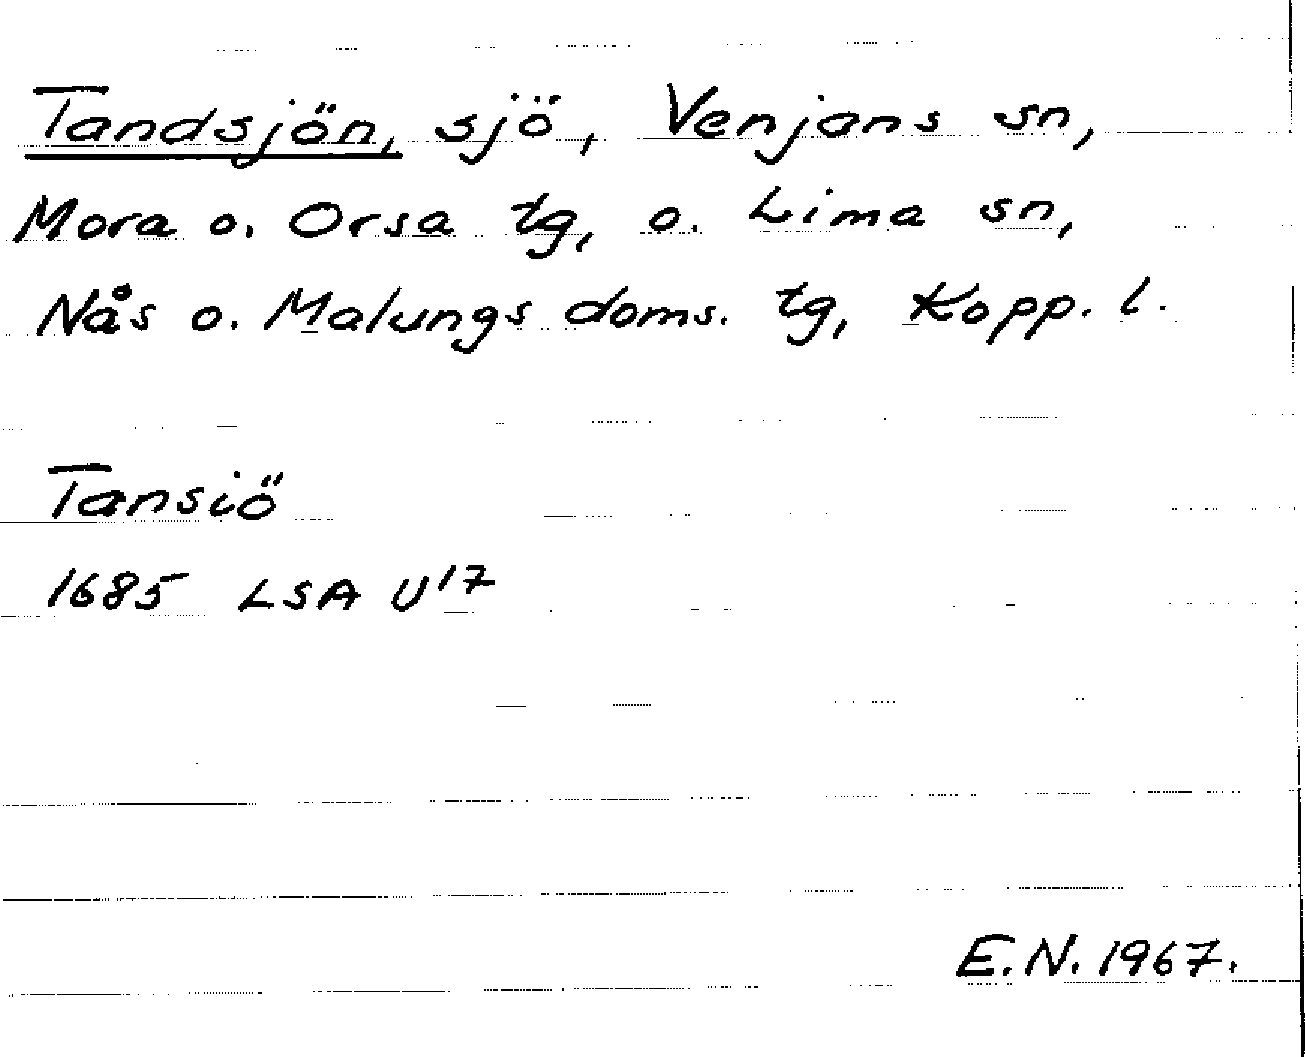 Tandsjön, sjö, Venjans sn,
Mora o. Orsa tg, o. Lima sn,
Nås o. Malungs doms. tg, Kopp. l.
Tansiö
1685 LSA U17
E.N. 1967.